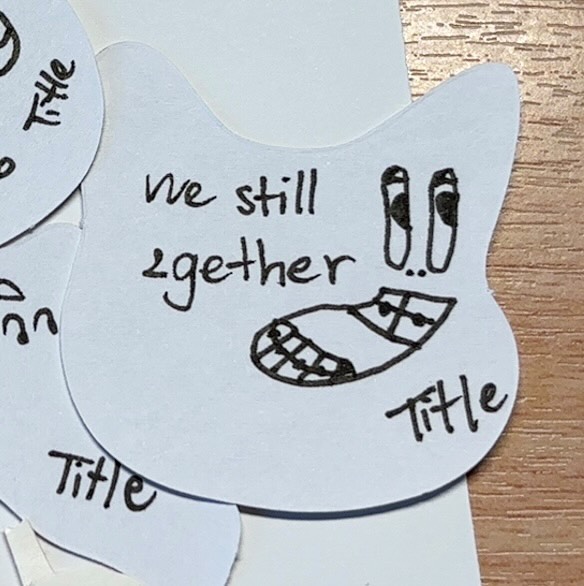 Title
we still
2gether
Title
Title